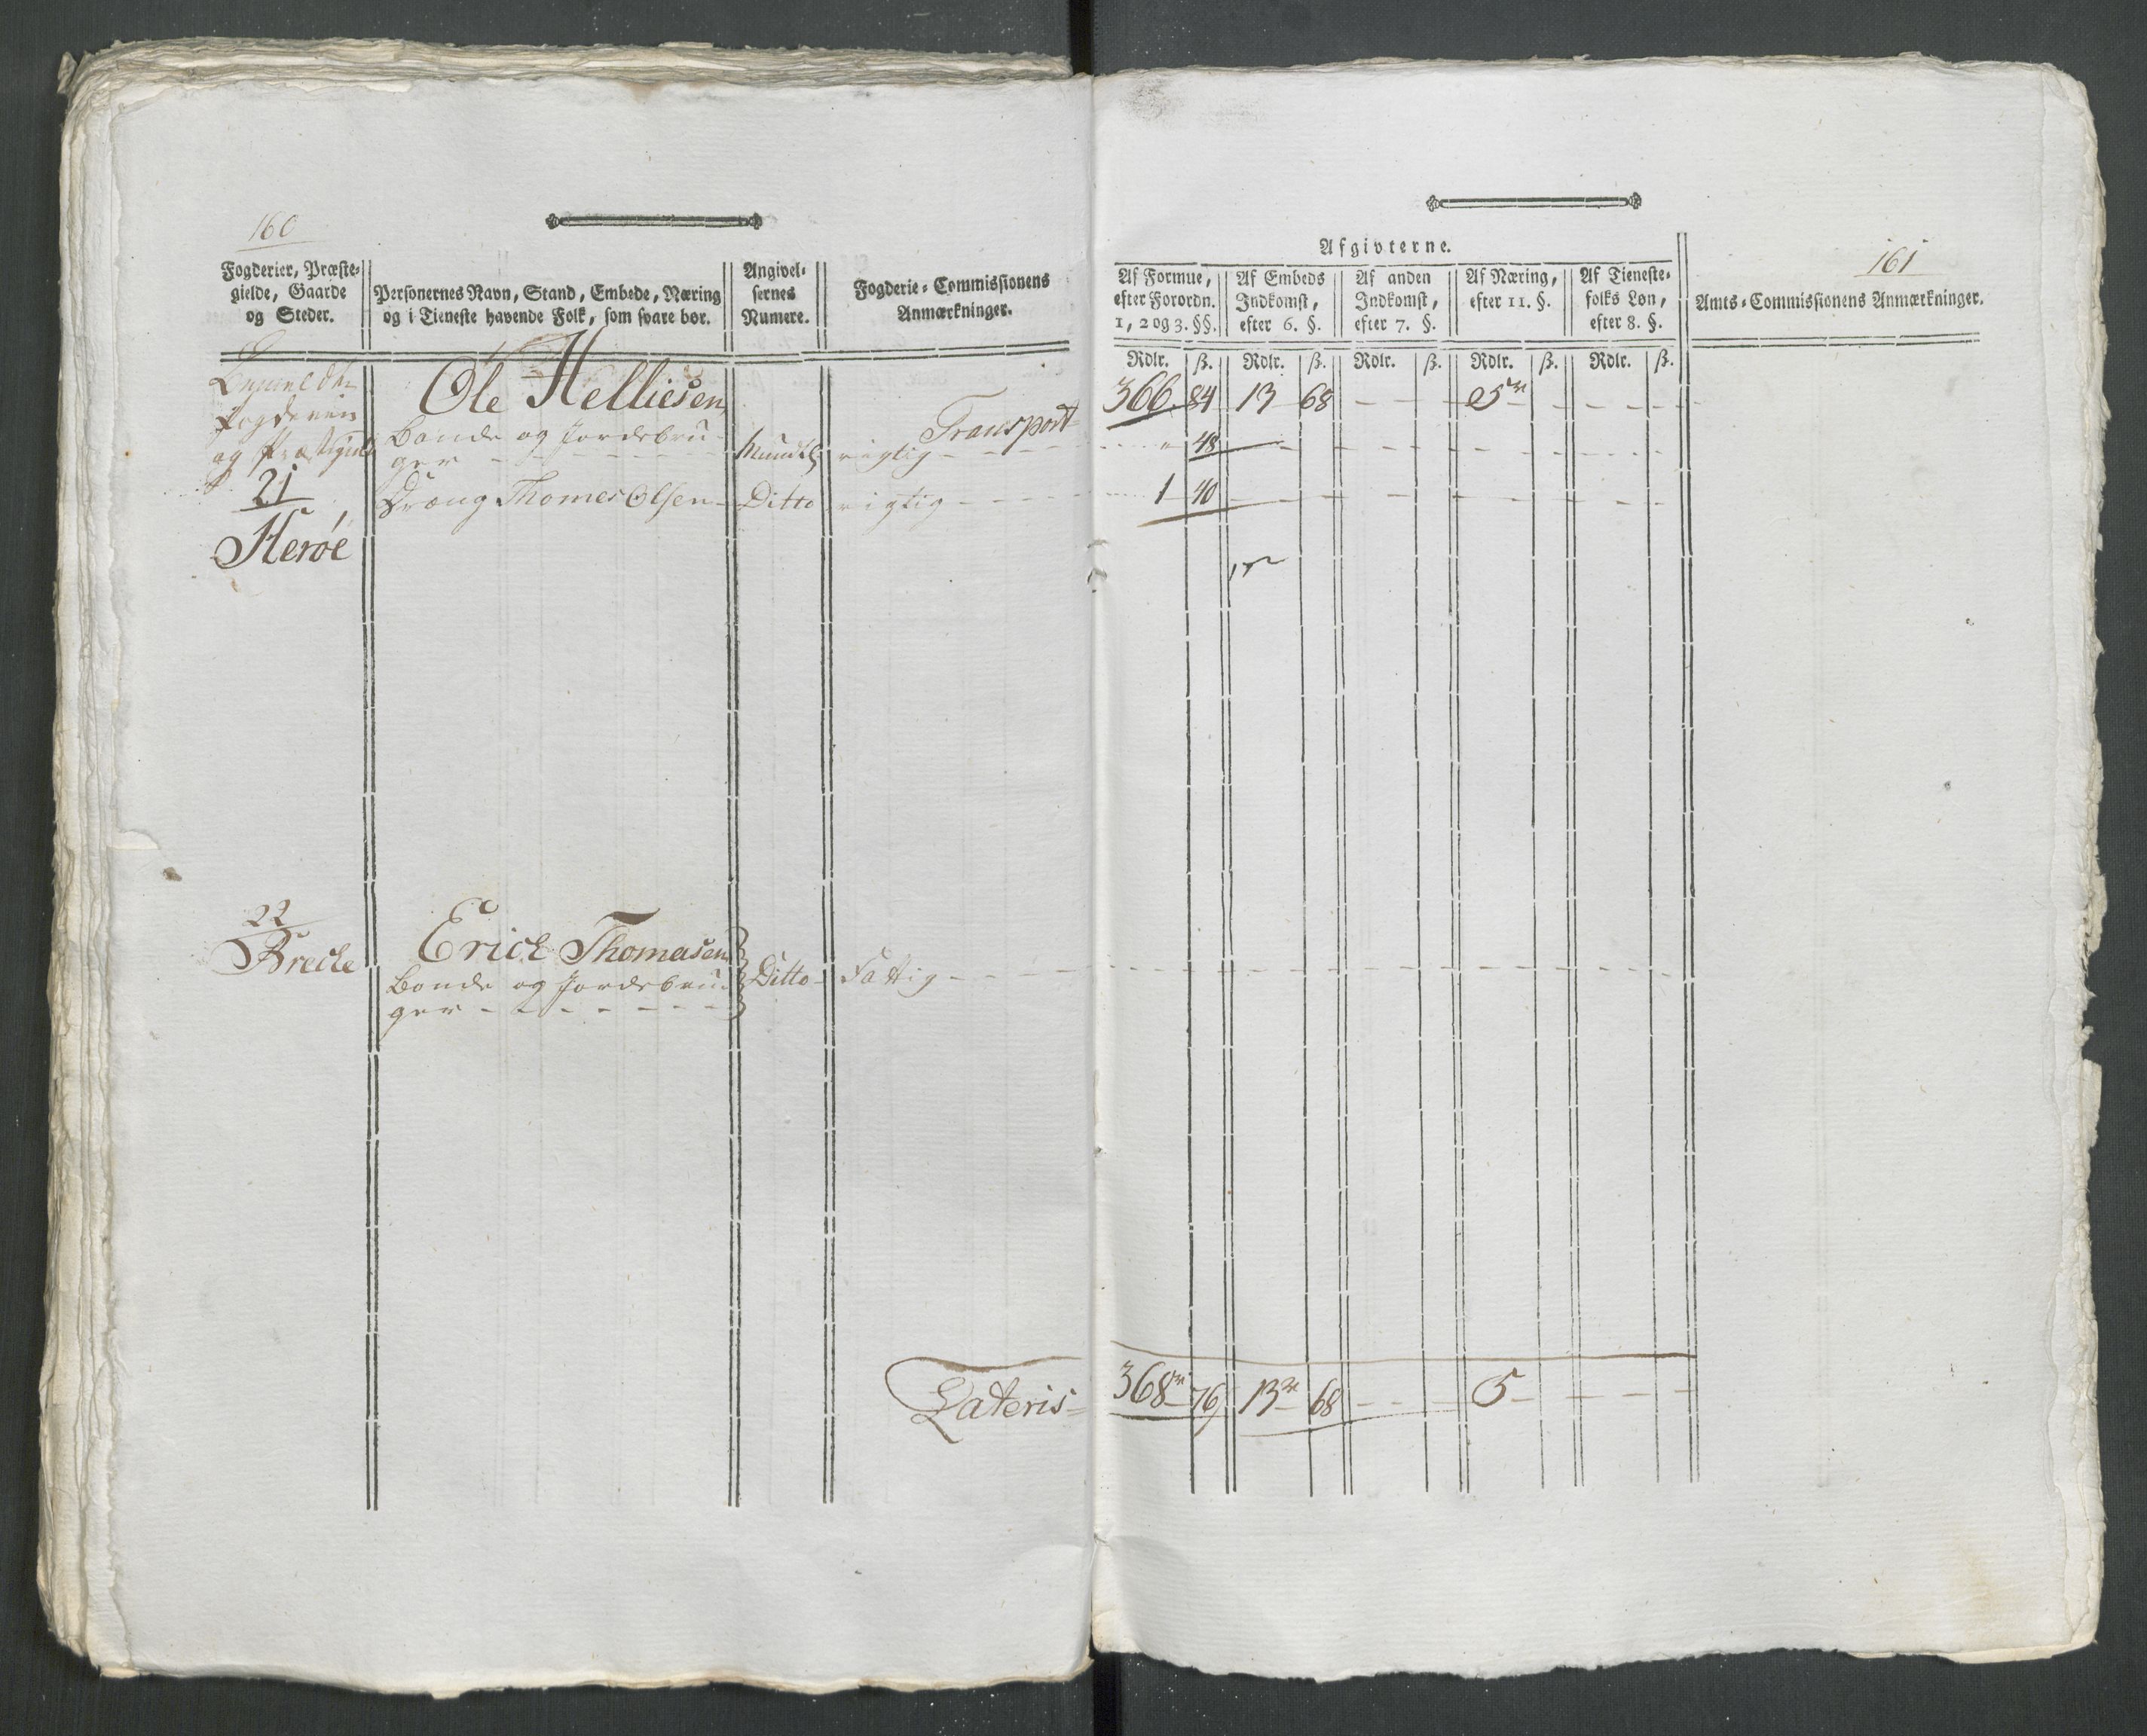 160
Fogderier, Præste-
gielde, Gaarde
og Steder.
Personernes Navn, Stand, Embede, Næring
og i Tieneste havende Folk, som svare bør.
Angivel-
sernes
Numere.
Fogderie-Commissionens
Anmærkninger.
Bemeldte
Fogderie
og Præstegield
21
Herøe
Ole Helliesen
Bonde og Jordebru-
ger - - - - - -
Mundtl. rigtig - - - -
Transport
Dræng Thomes Olsen - Ditto rigtig - - - -
22
Brecke
Erick Thomasen
Bonde og Jordebru-
ger - - - - - -
Ditto - Fattig - - - -
Lateris
161
Afgivterne.
Af Formue,
efter Forordn.
1, 2 og 3. §§.
Af Embeds
Indkomst,
efter 6. §.
Af anden
Indkomst,
efter 7. §.
Af Næring,
efter 11. §.
Af Tieneste-
folks Løn,
efter 8. §.
Amts-Commissionens Anmærkninger.
Rdlr. ß. Rdlr. ß. Rdlr. ß. Rdlr. ß. Rdlr. ß.
366 84 13 68 - - - 5 - - - -
48 - - - - - - - -
1 40 - - - - - - - -
368 76 13 68 - - - 5 - - - -